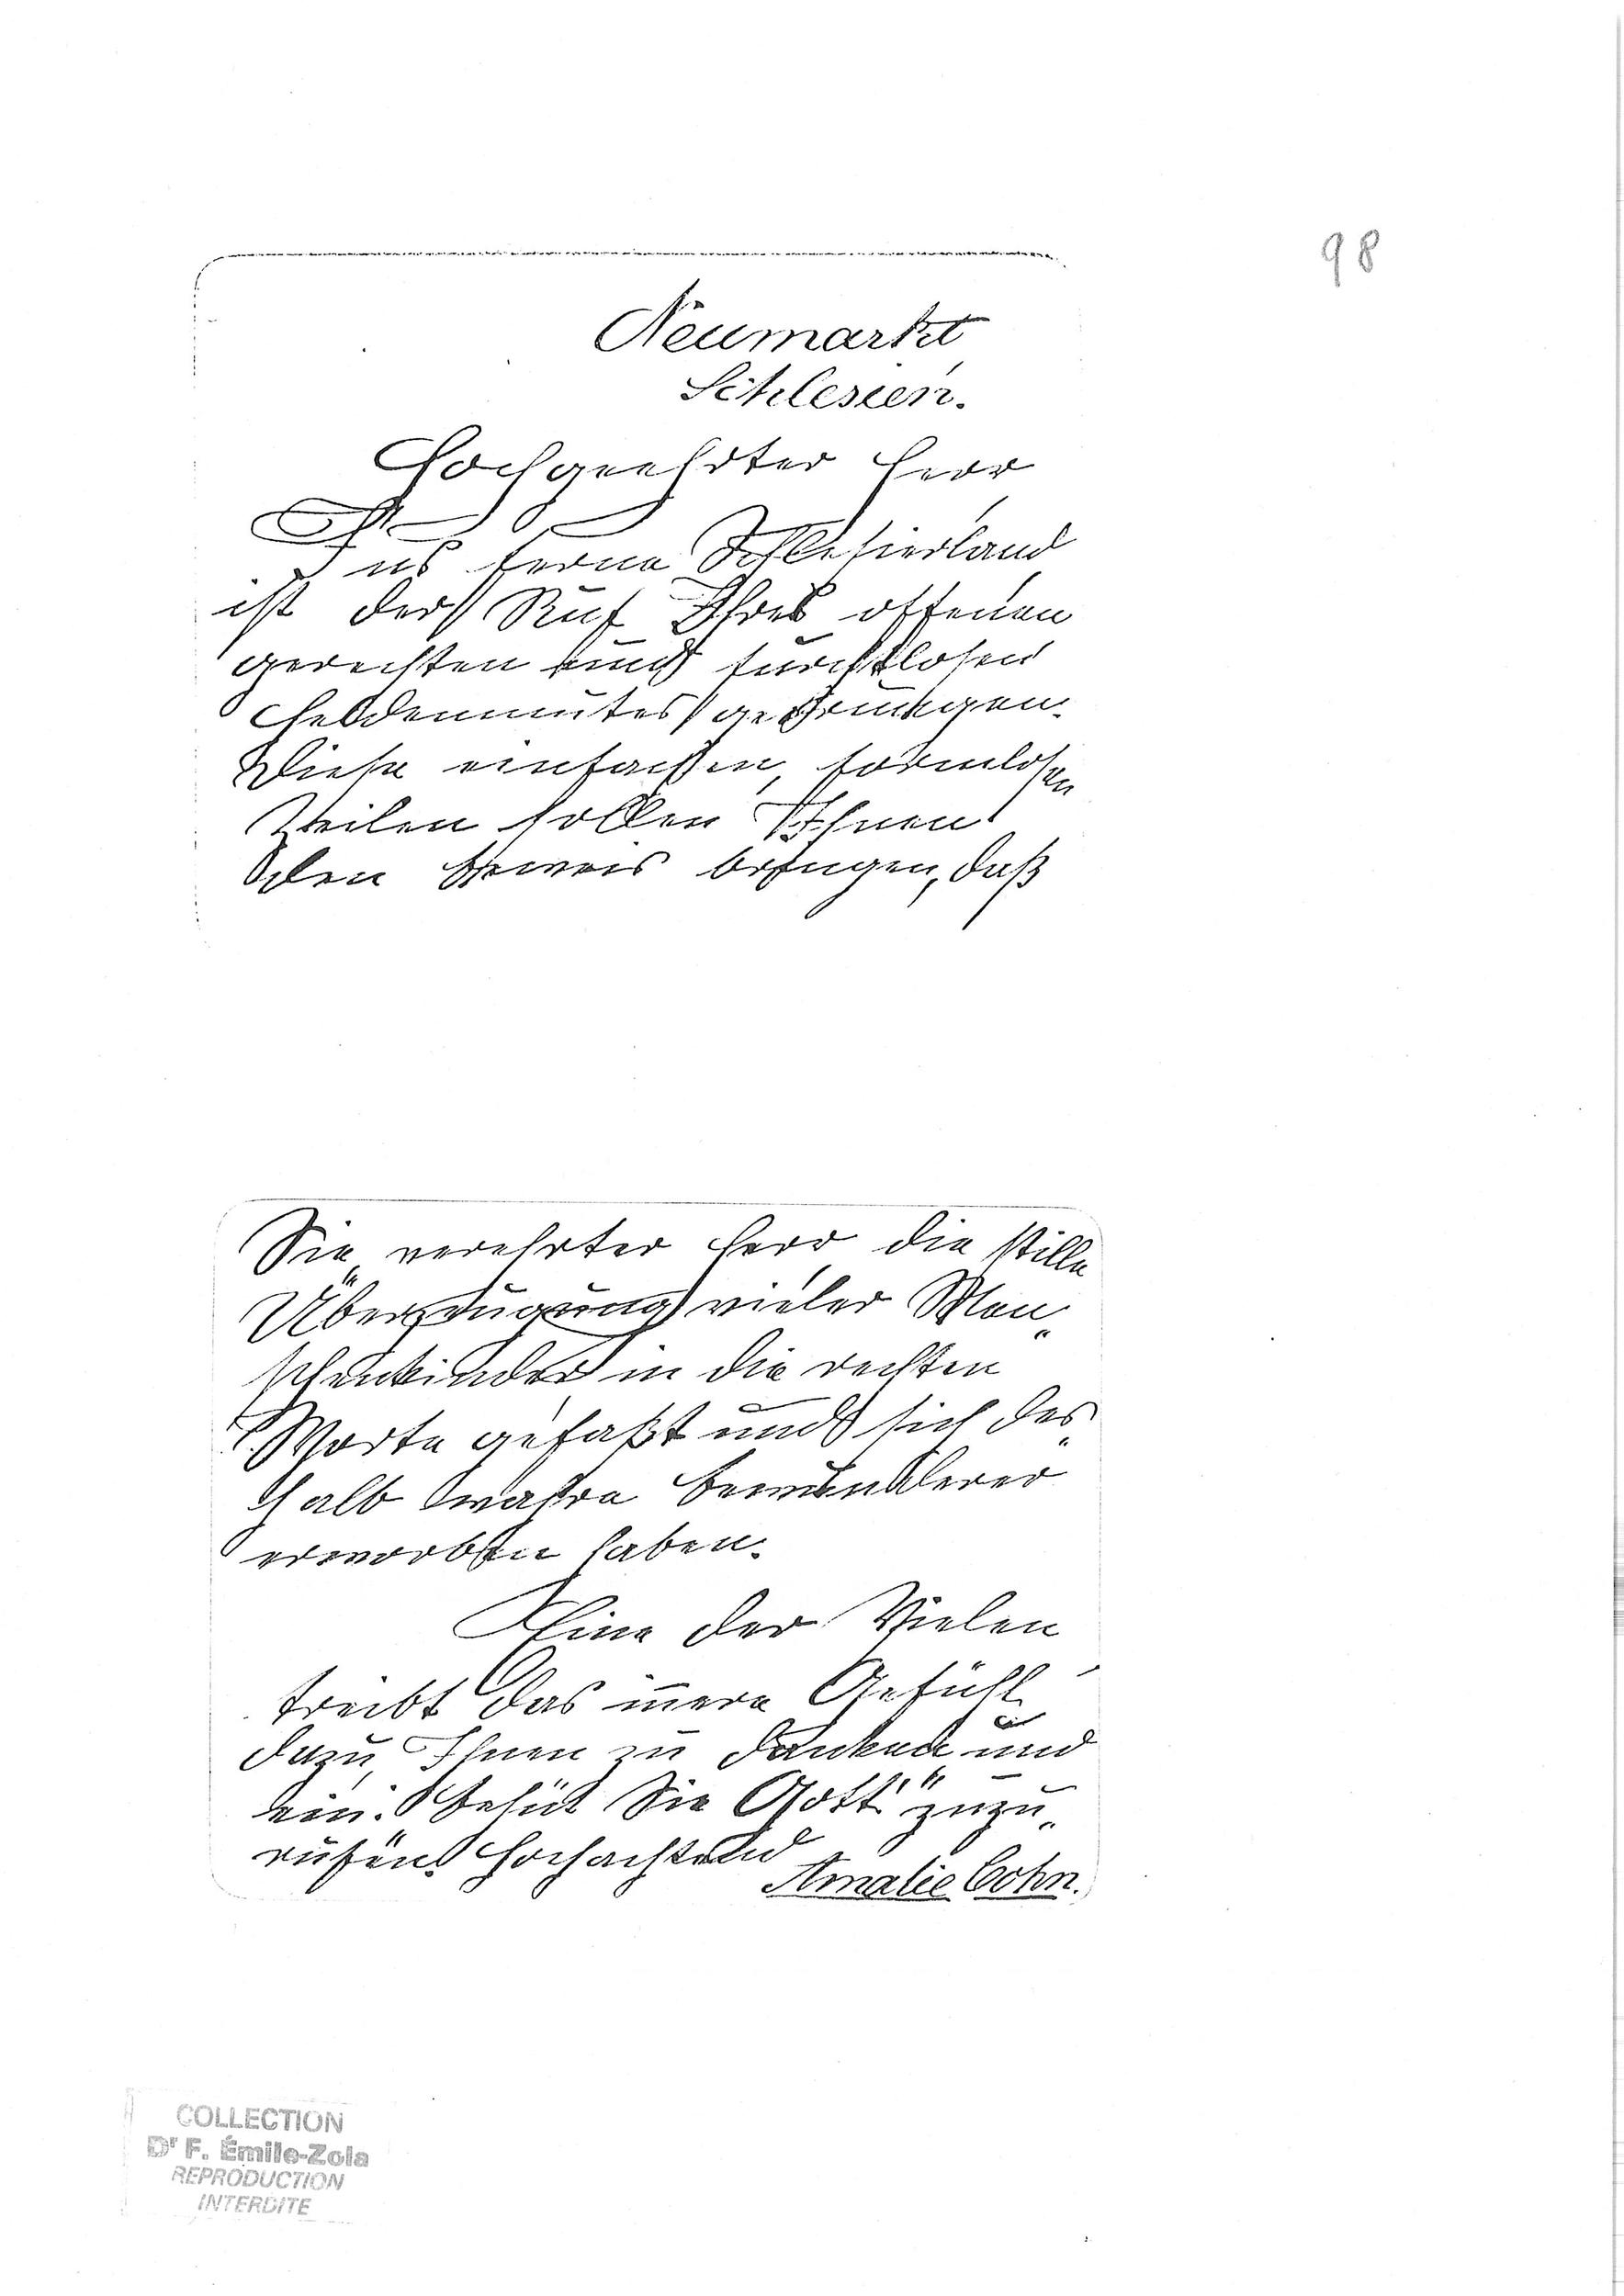 98
Neumarkt
Schlesien.
Hochgeehrter Herr
Ins ferne Schlesierland
ist der Ruf Ihres offenen
gerechten und furchtlosen
Heldenmutes gedrungen.
Diese einfachen, formlosen
Zeilen sollen Ihnen
den Beweis bringen, daß
Sie verehrter Herr die stille
Überzeugung vieler Men„
schenkinder in die rechten
Worte gefaßt und sich des„
halb wahre Bewunderer
erworben haben.
Eine der Vielen
treibt das innere Gefühl
dazu, Ihnen zu danken und
ein: „Behüt Sie Gott“ zuzu„
rufen. Hochachtend
Amalie Cohn.
COLLECTION
Dr F. Émile-Zola
REPRODUCTION
INTERDITE